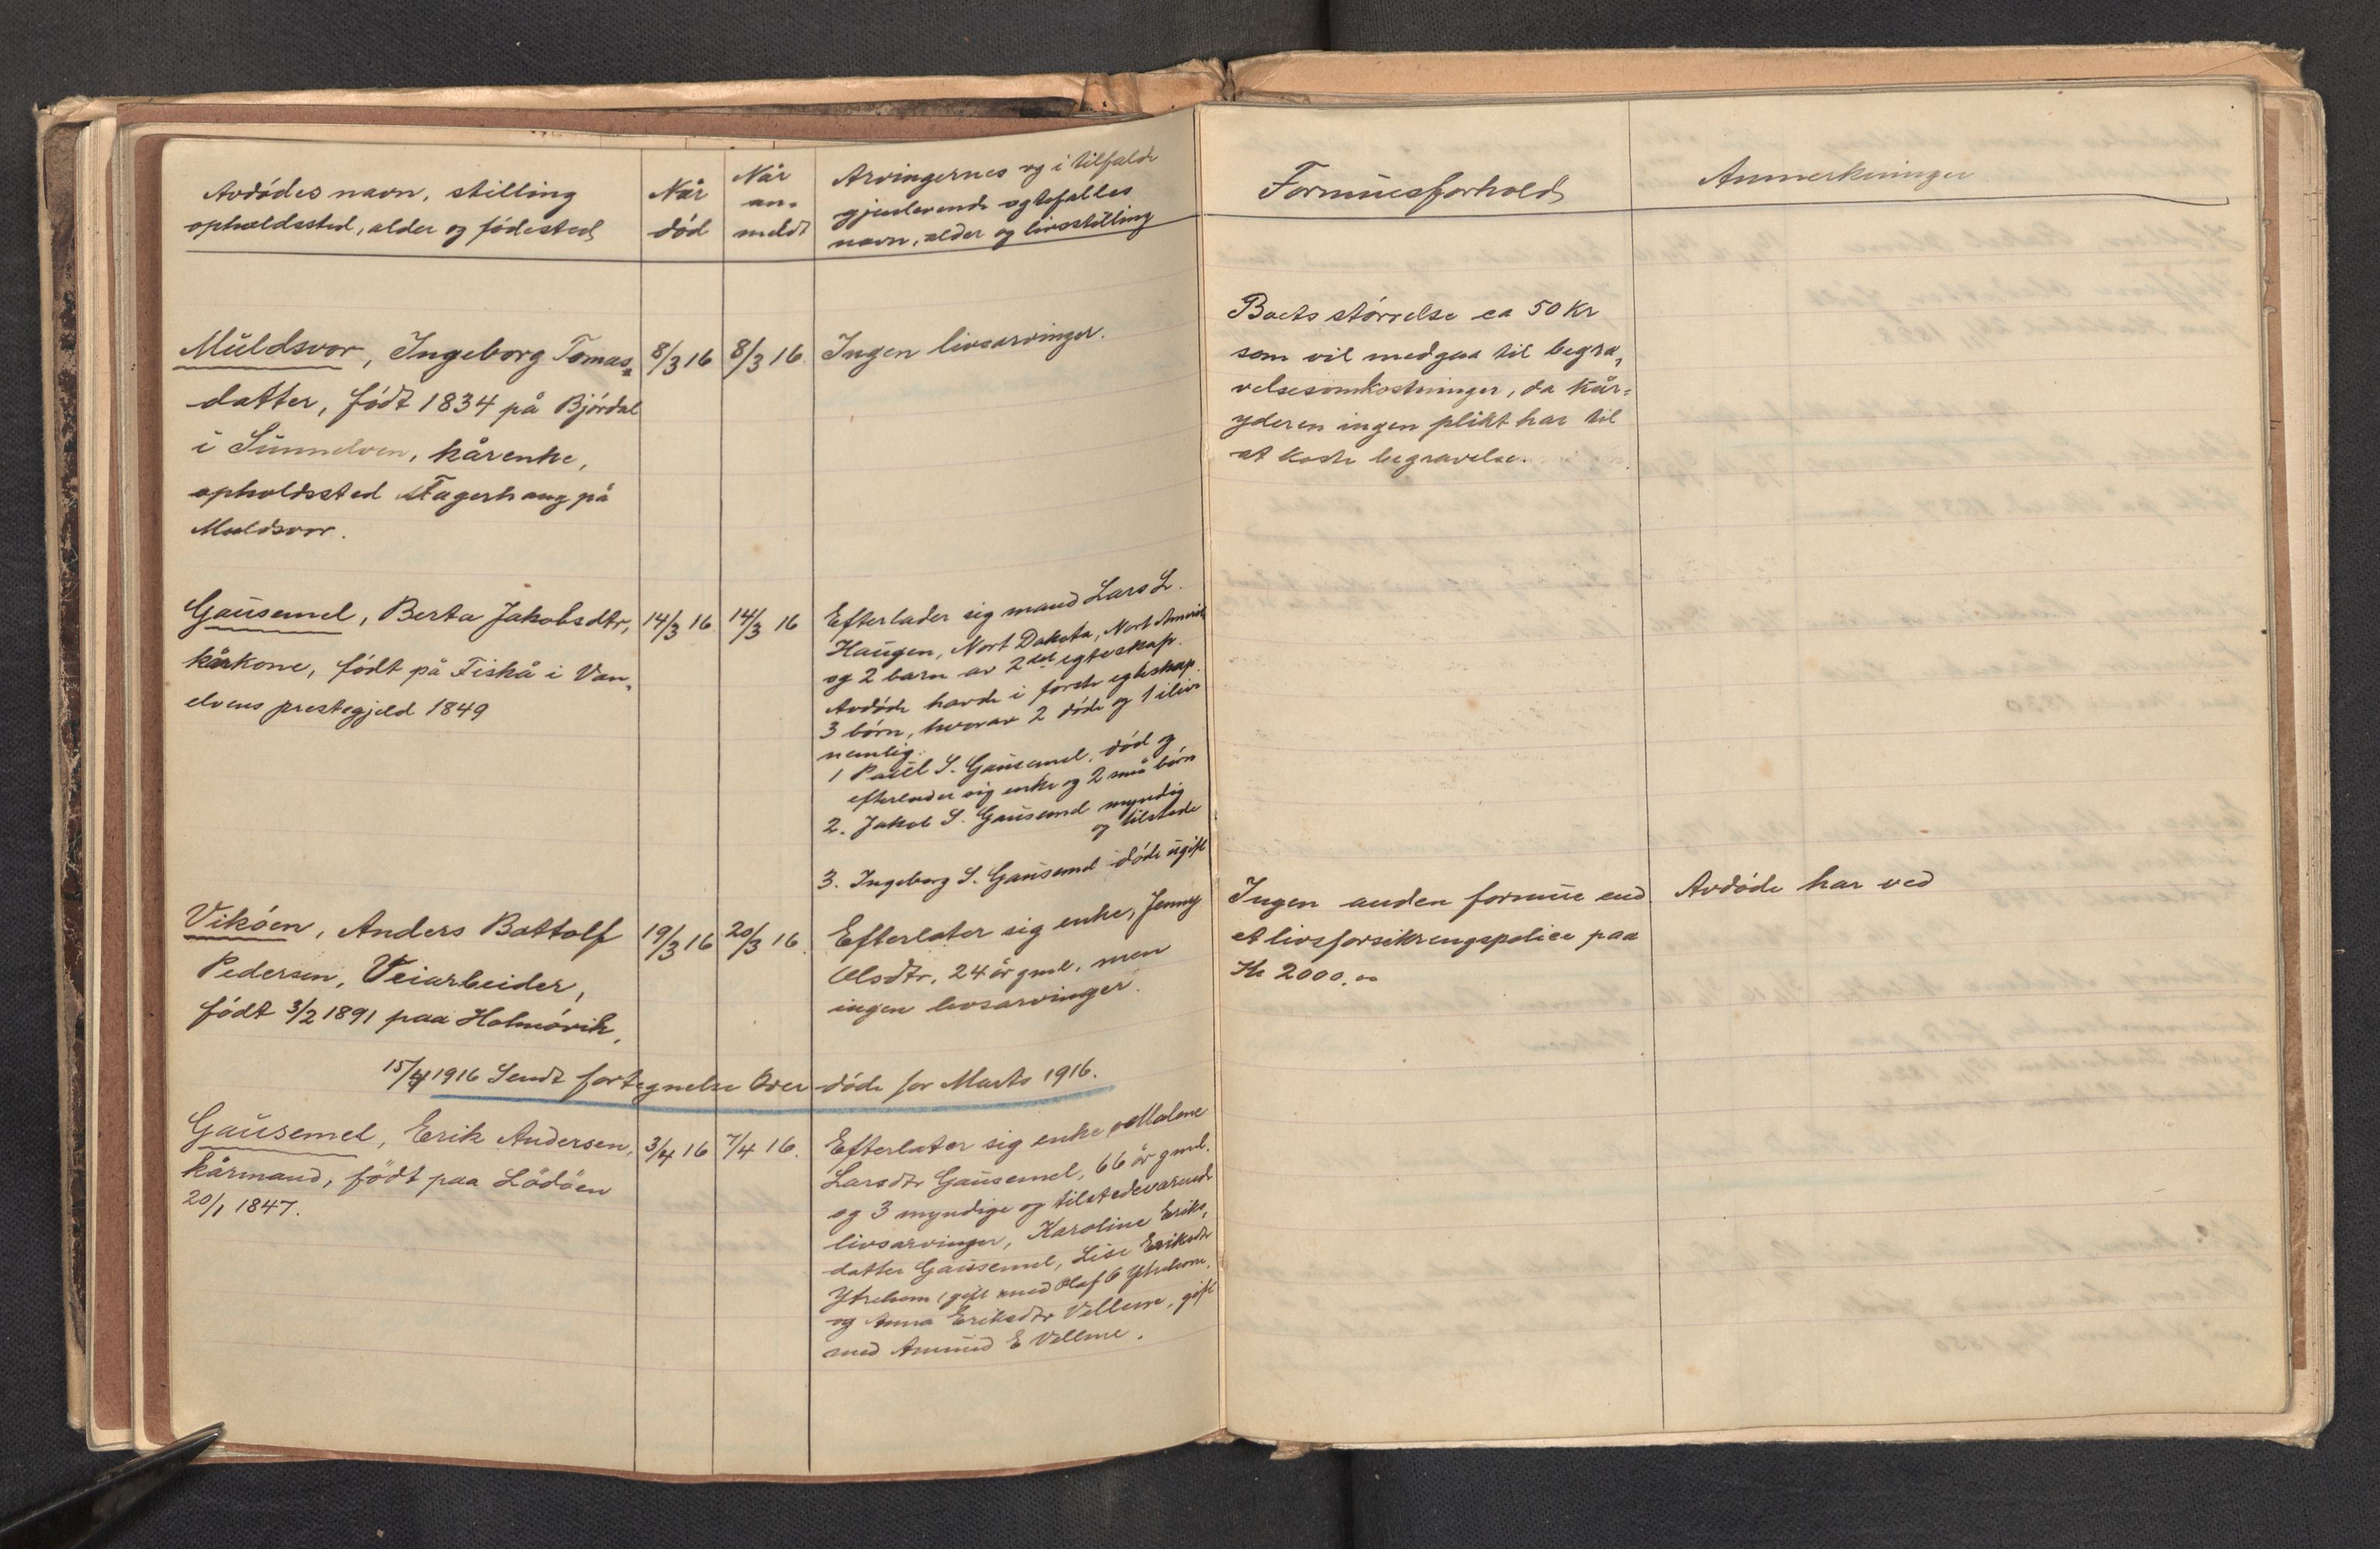 Avdödes navn, stilling
opholdssted, alder og födested
Når
död
Når
an-
meldt
Arvingernes og i tilfælde
gjenlevende egtefælles
navn, alder og livsstilling
Formuesforhold
Anmerkninger
Muldsvor, Ingeborg Tomas=
datter, födt 1834 på Bjørdal
i Sunnelven, kårenke,
opholdssted Fagerhaug på
Muldsvor.
8/3 16
8/3 16.
Ingen livsarvinger.
Boets störrelse ca 50 Kr
som vil medgaa til begra,
velsesomkostninger, da kår=
yderen ingen plikt har til
at koste begravelse.
Gausemel, Berta Jakobsdtr,
kårkone, födt på Fiskå i Van,
elvens prestegjeld 1849
14/3 16
14/3 16
Efterlader sig mand Lars L.
Haugen, Nort Dakota, Nort Amerik
og 2 barn av 2det egteskap.
Avdöde havde i förste egteskap
3 börn, hvorav 2 döde og 1 ilive
nemlig:
1 Paul S. Gausemel, död og
efterlader sig enke og 2 små börn
2. Jakob S. Gausemel myndig
og tilstede
3. Ingeborg S. Gausemel döde ugift
Viköen, Anders Bottolf
Pedersen, Veiarbeider,
födt 3/2 1891 paa Holmövik,
19/3 16
20/3 16.
Efterlater sig enke, Jenny
Olsdtr, 24 år gml, men
ingen livsarvinger.
Ingen anden formue end
et livsforsikringspolice paa
Kr 2000.00
Avdöde har ved
15/4 1916 Sendt fortegnelse over döde for Marts 1916.
Gausemel, Erik Andersen,
kårmand, födt paa Lödöen
20/1 1847.
3/4 16
7/4 16.
Efterlater sig enke Malene
Larsdtr Gausemel, 66 år gml.
og 3 myndige og tilstedeværende
livsarvinger, Karoline Eriks,
datter Gausemel, Lise Eriksdtr
Ytrehorn (gift med Olaf O Ytrehorn,
og Anna Eriksdtr Velleme, gift
med Amund E Velleme.